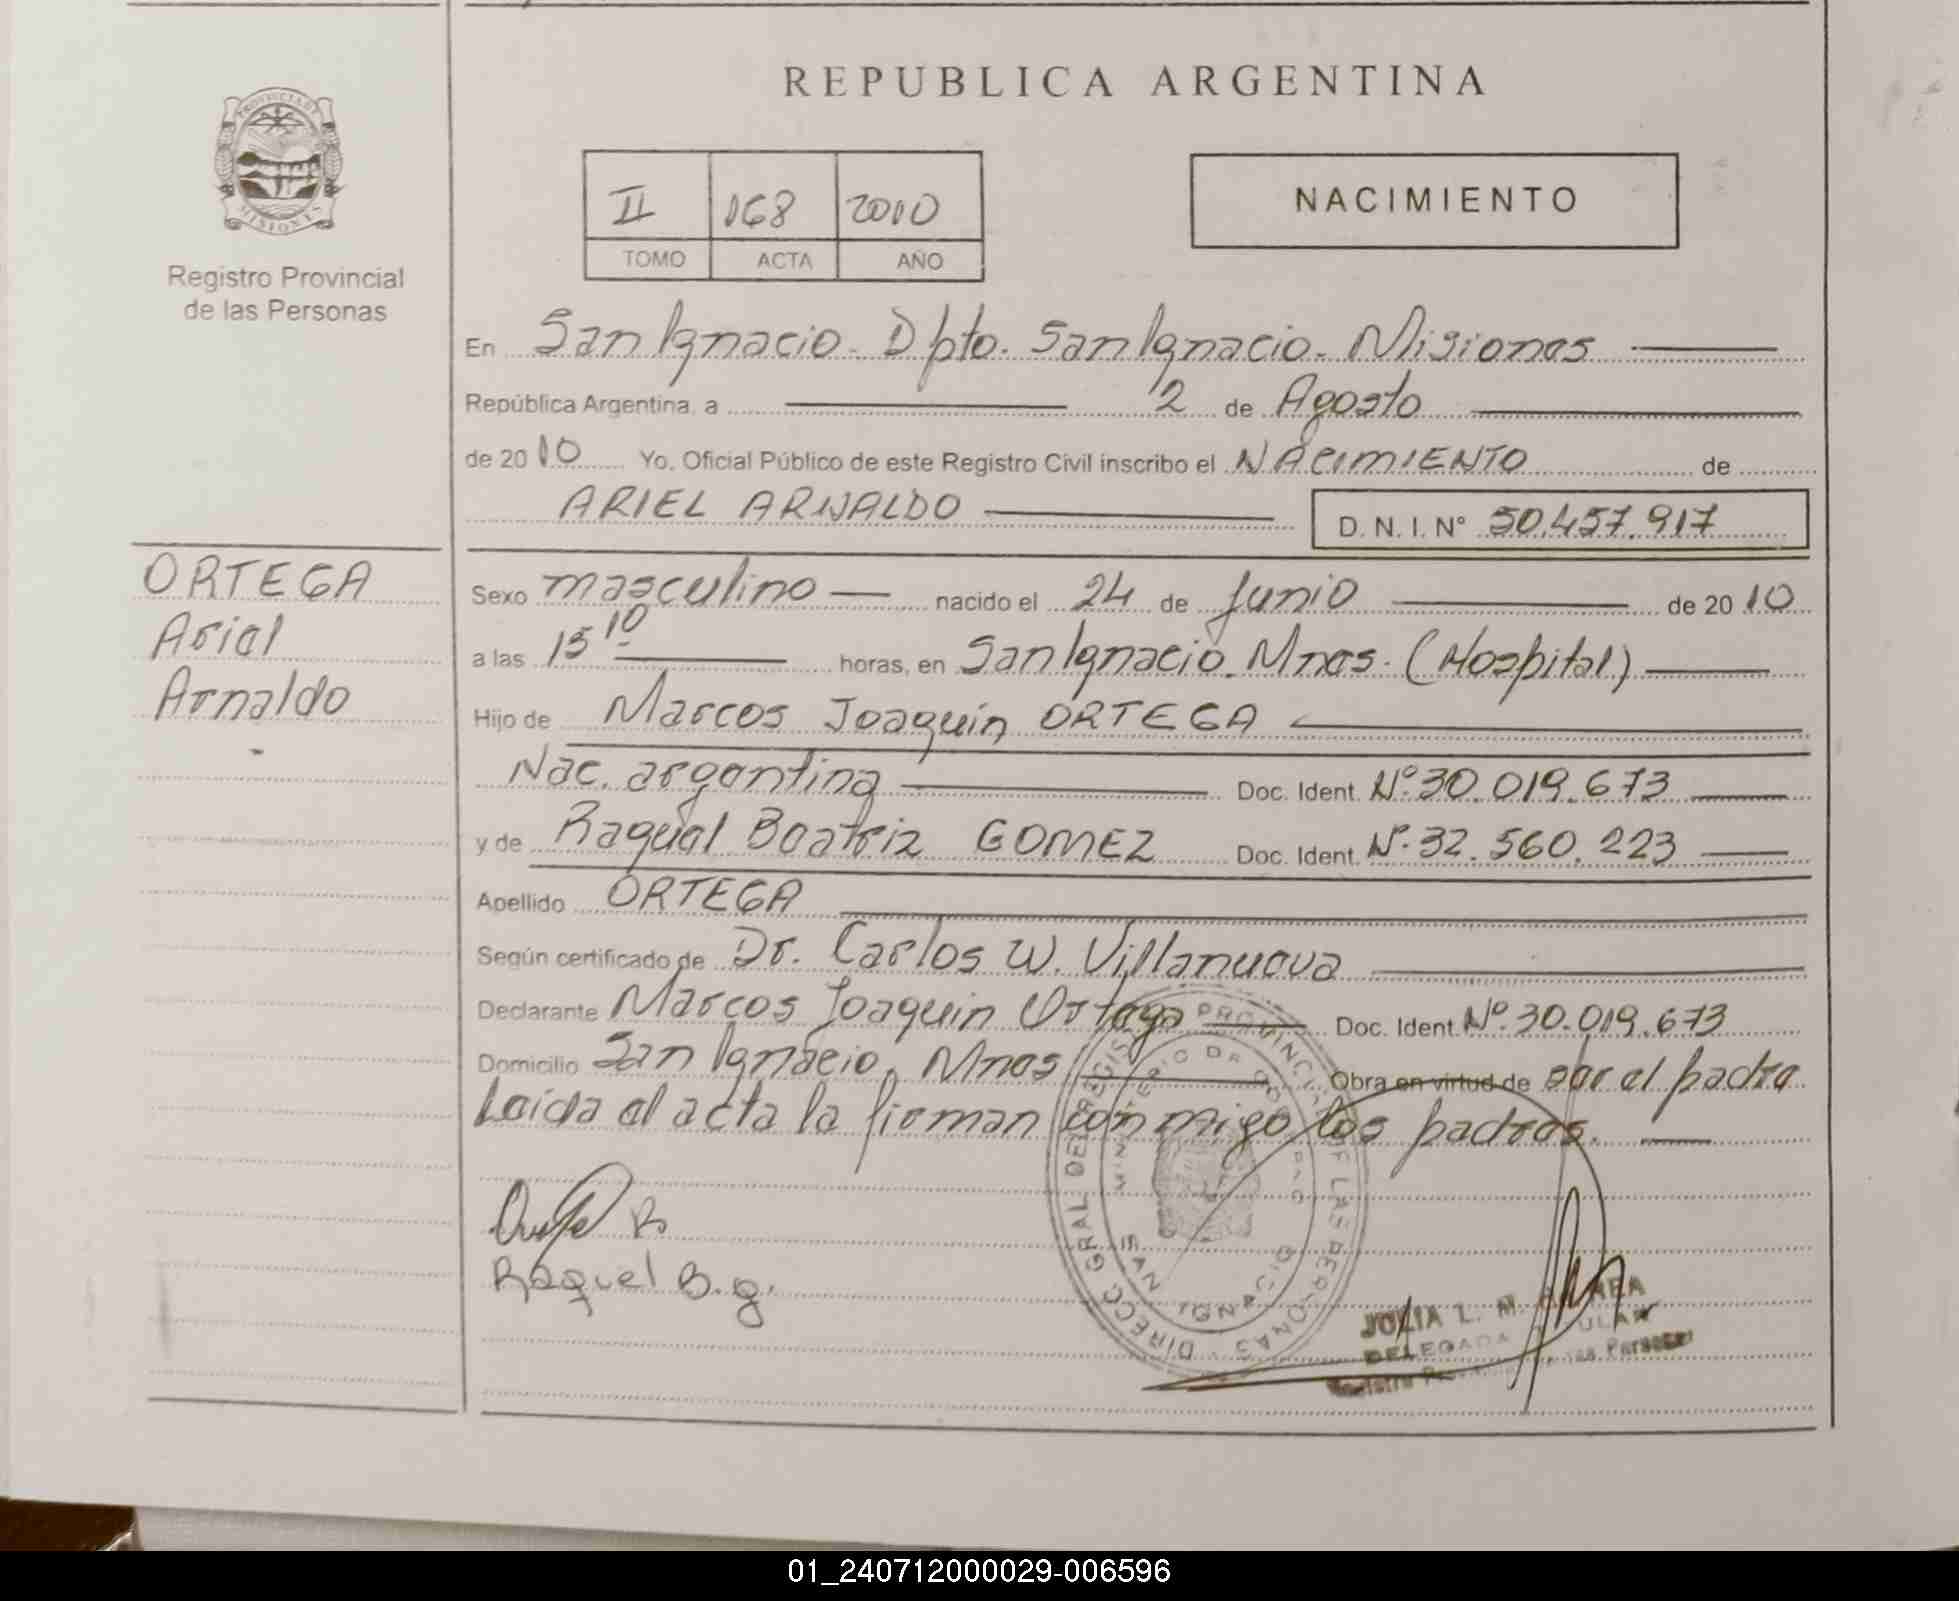 REPUBLICA ARGENTINA
PROVINCIA DE MISIONES
Registro Provincial
de las Personas
II 168 2010
TOMO ACTA AÑO
NACIMIENTO
En San Ignacio. Dpto. San Ignacio. Misiones
República Argentina, a 2 de Agosto
de 2010 Yo, Oficial Público de este Registro Civil inscribo el NACIMIENTO de
ARIEL ARNALDO D. N. I. N° 50.457.917
ORTEGA
Ariel
Arnaldo
Sexo masculino nacido el 24 de Junio de 2010
a las 15 10 horas, en San Ignacio. Mnes. (Hospital)
Hijo de Marcos Joaquin ORTEGA
Nac. argentina Doc. Ident. N° 30.019.673
y de Raquel Beatriz GOMEZ Doc. Ident. N° 32.560.223
Apellido ORTEGA
Según certificado de Dr. Carlos W. Villanueva
Declarante Marcos Joaquin Ortega Doc. Ident. N° 30.019.673
Domicilio San Ignacio. Mnes Obra en virtud de por el padre
Leida el acta la firman conmigo los padres.
Raquel B. g.
DIRECC. GRAL DEL REGIST. PROVINCIAL DE LAS PERSONAS
MINISTERIO DE GOBIERNO
SAN IGNACIO
JULIA L. M.
DELEGADA TITULAR
Registro Provincial de las Personas
01_240712000029-006596